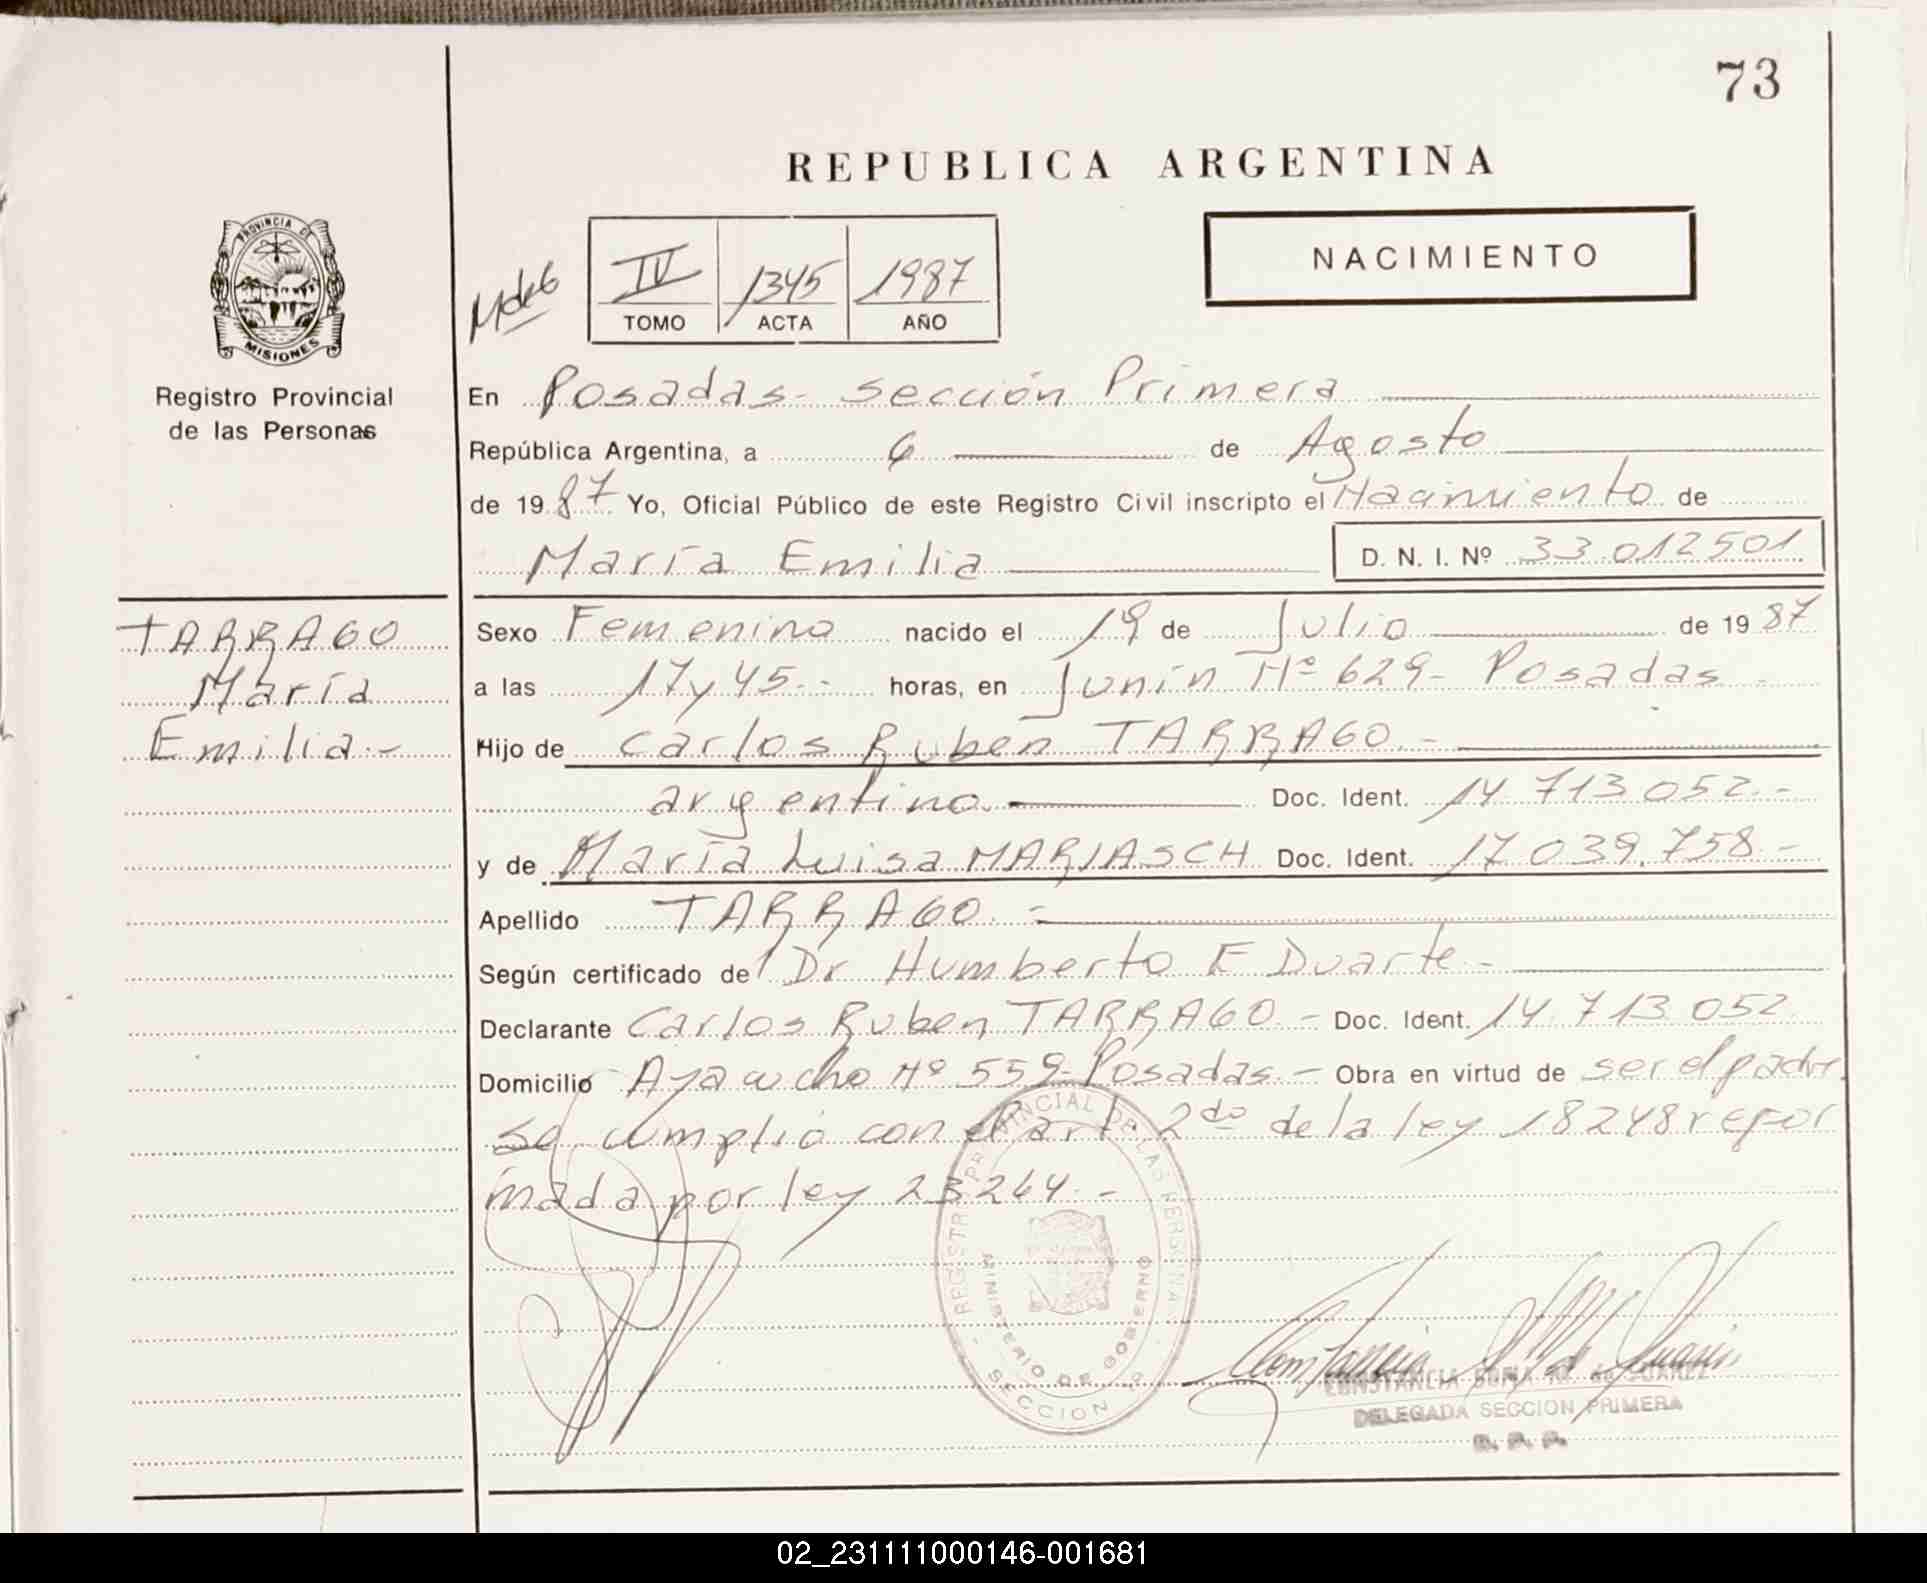 73
REPUBLICA ARGENTINA
PROVINCIA DE
MISIONES
Registro Provincial
de las Personas
IV 1345 1987
TOMO ACTA AÑO
NACIMIENTO
En Posadas- sección Primera
República Argentina, a 6 de Agosto
de 1987 Yo, Oficial Público de este Registro Civil inscripto el Nacimiento de
María Emilia D. N. I. Nº 33.012501
TARRAGO
María
Emilia.-
Sexo Femenino nacido el 19 de Julio de 1987
a las 17 y 45.- horas, en Junín Nº 629- Posadas
Hijo de Carlos Ruben TARRAGO.-
argentino Doc. Ident. 14 713 052.-
y de María Luisa MARIASCH Doc. Ident. 17 039.758-
Apellido TARRAGO.-
Según certificado del Dr Humberto E Duarte-
Declarante Carlos Ruben TARRAGO- Doc. Ident. 14.713 052
Domicilio Ayacucho Nº 559-Posadas.- Obra en virtud de ser el padre.
se cumplió con el art. 2do de la ley 18248 refor
mada por ley 23264.-
REGISTRO PROVINCIAL DE LAS PERSONAS
MINISTERIO DE GOBIERNO
SECCION
CONSTANCIA DE SUAREZ
DELEGADA SECCION PRIMERA
R. P. P.
02_231111000146-001681